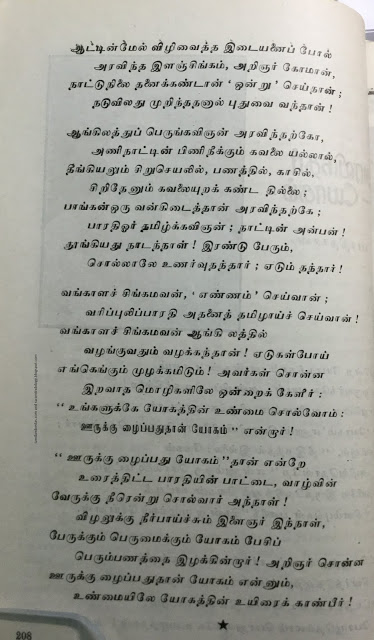 ஆட்டின்மேல் விழிவைத்த இடையனைப் போல்
அரவிந்த இளஞ்சிங்கம், அறிஞர் கோமான்,
நாட்டுநிலை தனைக்கண்டான் ‘ ஒன்று’ செய்தான் ;
நடுவிலது முறிந்ததனால் புதுவை வந்தான் !
ஆங்கிலத்துப் பெருங்கவிஞன் அரவிந்தற்கோ,
அணிநாட்டின் பிணிநீக்கும் கவலை யல்லால்,
தீங்கியலும் சிறுசெயலில், பணத்தில், காசில்,
சிறிதேனும் கவலையுறக் கண்ட தில்லை ;
பாங்கன்ஒரு வன்கிடைத்தான் அரவிந்தற்கே ;
பாரதிஓர் தமிழ்க்கவிஞன் ; நாட்டின் அன்பன் !
தூங்கியது நாடந்நாள் ! இரண்டு பேரும்,
சொல்லாலே உணர்வுதந்தார் ; ஏடும் தந்தார் !
வங்காளச் சிங்கமவன், ‘ எண்ணம்’ செய்வான் ;
வரிப்புலிப்பாரதி அதனைத் தமிழாய்ச் செய்வான் !
வங்காளச் சிங்கமவன் ஆங்கி லத்தில்
வழங்குவதும் வழக்கந்தான் ! ஏடுகள்போய்
எங்கெங்கும் முழக்கமிடும் ! அவர்கள் சொன்ன
இறவாத மொழிகளிலே ஒன்றைக் கேளீர் :
“ உங்களுக்கே யோகத்தின் உண்மை சொல்வோம் :
ஊருக்கு ழைப்பதுதான் யோகம் ” என்றார் !
“ ஊருக்கு ழைப்பது யோகம் ”தான் என்றே
உரைத்திட்ட பாரதியின் பாட்டை, வாழ்வின்
வேருக்கு நீரென்று சொல்வார் அந்நாள் !
விழலுக்கு நீர்பாய்ச்சும் இளைஞர் இந்நாள்,
பேருக்கும் பெருமைக்கும் யோகம் பேசிப்
பெரும்பணத்தை இழக்கின்றார் ! அறிஞர் சொன்ன
ஊருக்கு ழைப்பதுதான் யோகம் என்னும்,
உண்மையிலே யோகத்தின் உயிரைக் காண்பீர் !
★
208